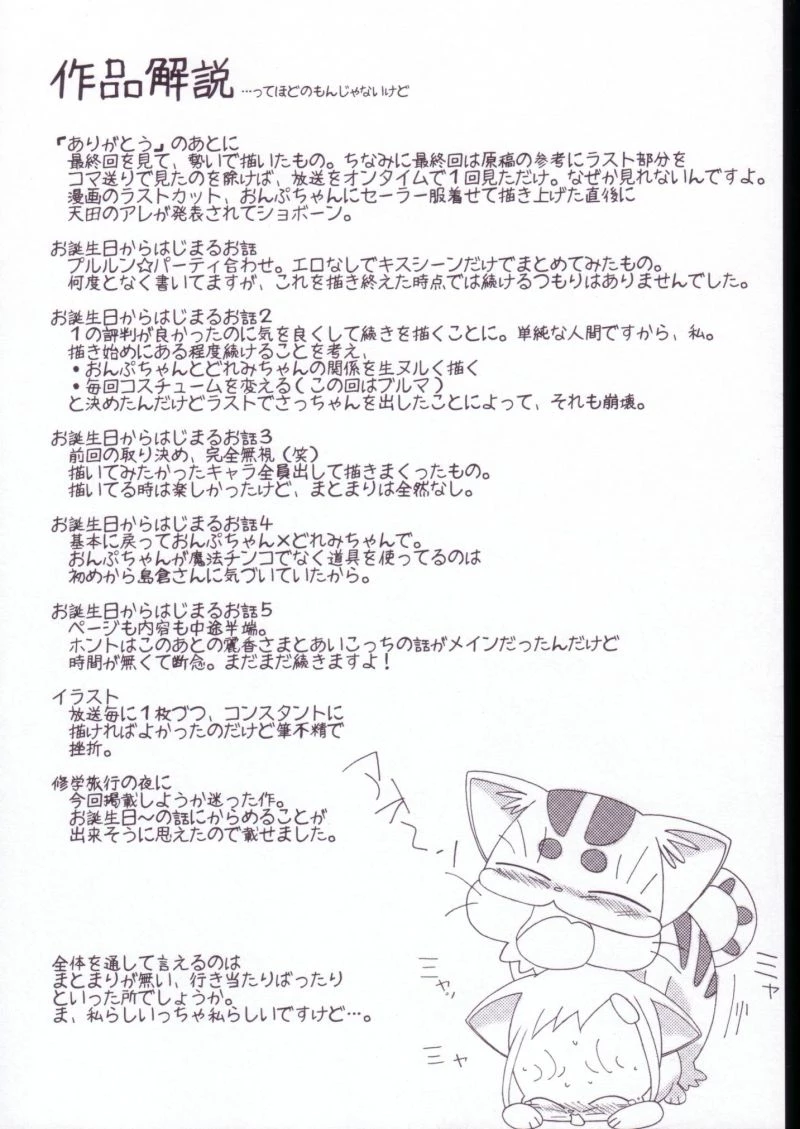 作品解説 …ってほどのもんじゃないけど
『ありがとう』のあとに
最終回を見て、勢いで描いたもの。ちなみに最終回は原稿の参考にラスト部分を
コマ送りで見たのを除けば、放送をオンタイムで1回見ただけ。なぜか見れないんですよ。
漫画のラストカット、おんぷちゃんにセーラー服着せて描き上げた直後に
天田のアレが発表されてショボーン。
お誕生日からはじまるお話
プルルン☆パーティ合わせ。エロなしでキスシーンだけでまとめてみたもの。
何度となく書いてますが、これを描き終えた時点では続けるつもりはありませんでした。
お誕生日からはじまるお話2
1の評判が良かったのに気を良くして続きを描くことに。単純な人間ですから、私。
描き始めにある程度続けることを考え、
・おんぷちゃんとどれみちゃんの関係を生ヌルく描く
・毎回コスチュームを変える(この回はブルマ)
と決めたんだけどラストでさっちゃんを出したことによって、それも崩壊。
お誕生日からはじまるお話3
前回の取り決め、完全無視(笑)
描いてみたかったキャラ全員出して描きまくったもの。
描いてる時は楽しかったけど、まとまりは全然なし。
お誕生日からはじまるお話4
基本に戻っておんぷちゃん×どれみちゃんで。
おんぷちゃんが魔法チンコでなく道具を使ってるのは
初めから島倉さんに気づいていたから。
お誕生日からはじまるお話5
ページも内容も中途半端。
ホントはこのあとの麗香さまとあいこっちの話がメインだったんだけど
時間が無くて断念。まだまだ続きますよ!
イラスト
放送毎に1枚づつ、コンスタントに
描ければよかったのだけど筆不精で
挫折。
修学旅行の夜に
今回掲載しようか迷った作。
お誕生日~の話にからめることが
出来そうに思えたので載せました。
全体を通して言えるのは
まとまりが無い、行き当たりばったり
といった所でしょうか。
ま、私らしいっちゃ私らしいですけど…。
ミャッ
ミャ
ミャ